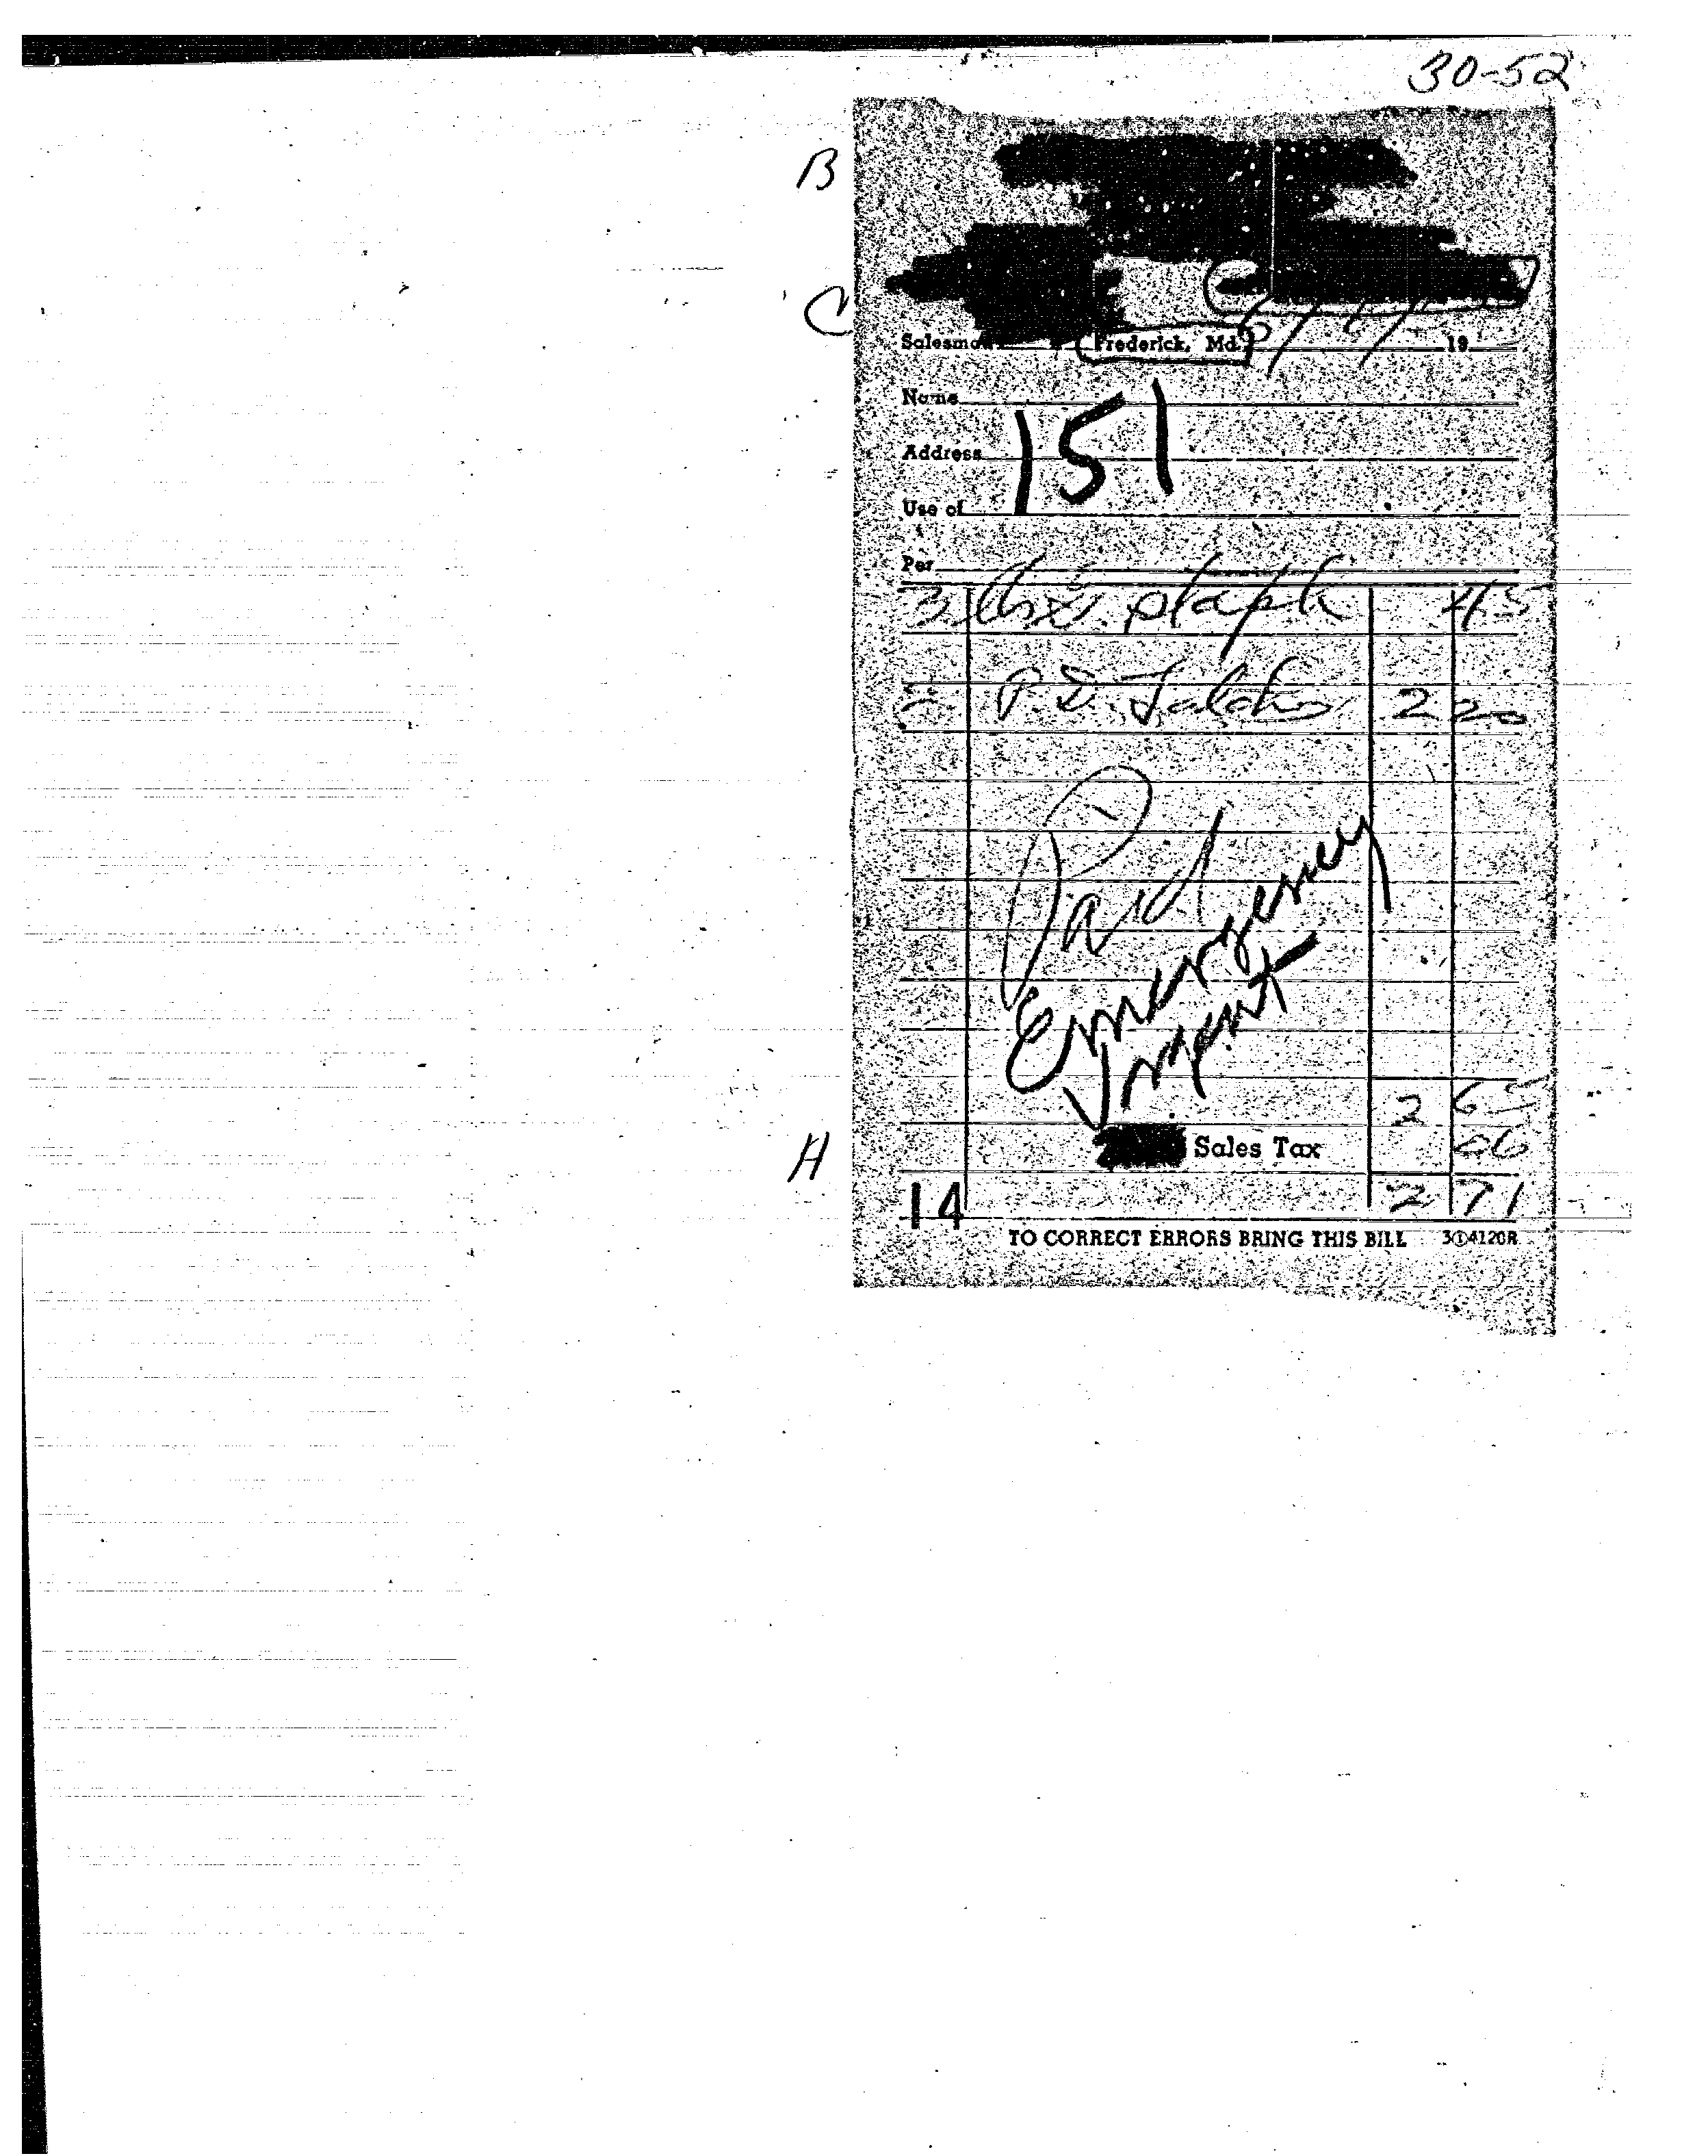 30-52
B
C
Salesman Frederick, Md. 19
Name
Address 151
Use of
Per
3 staple 45
2 P.D. 2 20
Paid
Emergency
Urgent
2 65
H Sales Tax 06
14 2 71
TO CORRECT ERRORS BRING THIS BILL 3①4120R